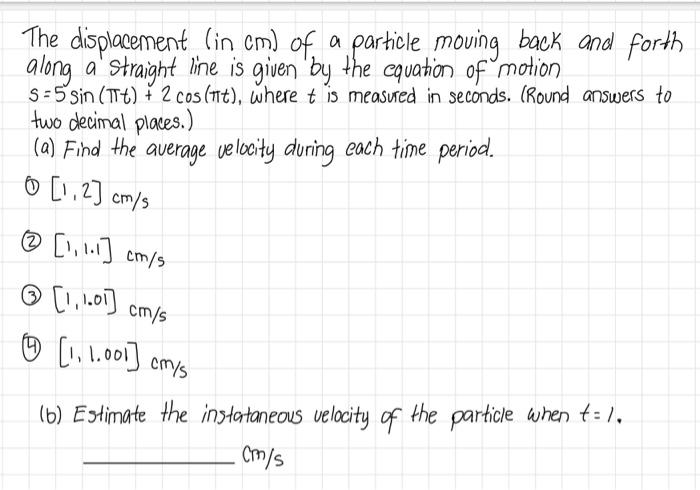 The displacement (in cm) of a particle moving back and forth
along a straight line is given by the equation of motion
s=5 sin(πt) + 2 cos(πt), where t is measured in seconds. (Round answers to
two decimal places.)
(a) Find the average velocity during each time period.
① [1,2] cm/s
② [1,1.1] cm/s
③ [1,1.01] cm/s
④ [1,1.001] cm/s
(b) Estimate the instataneous velocity of the particle when t=1.
________ cm/s